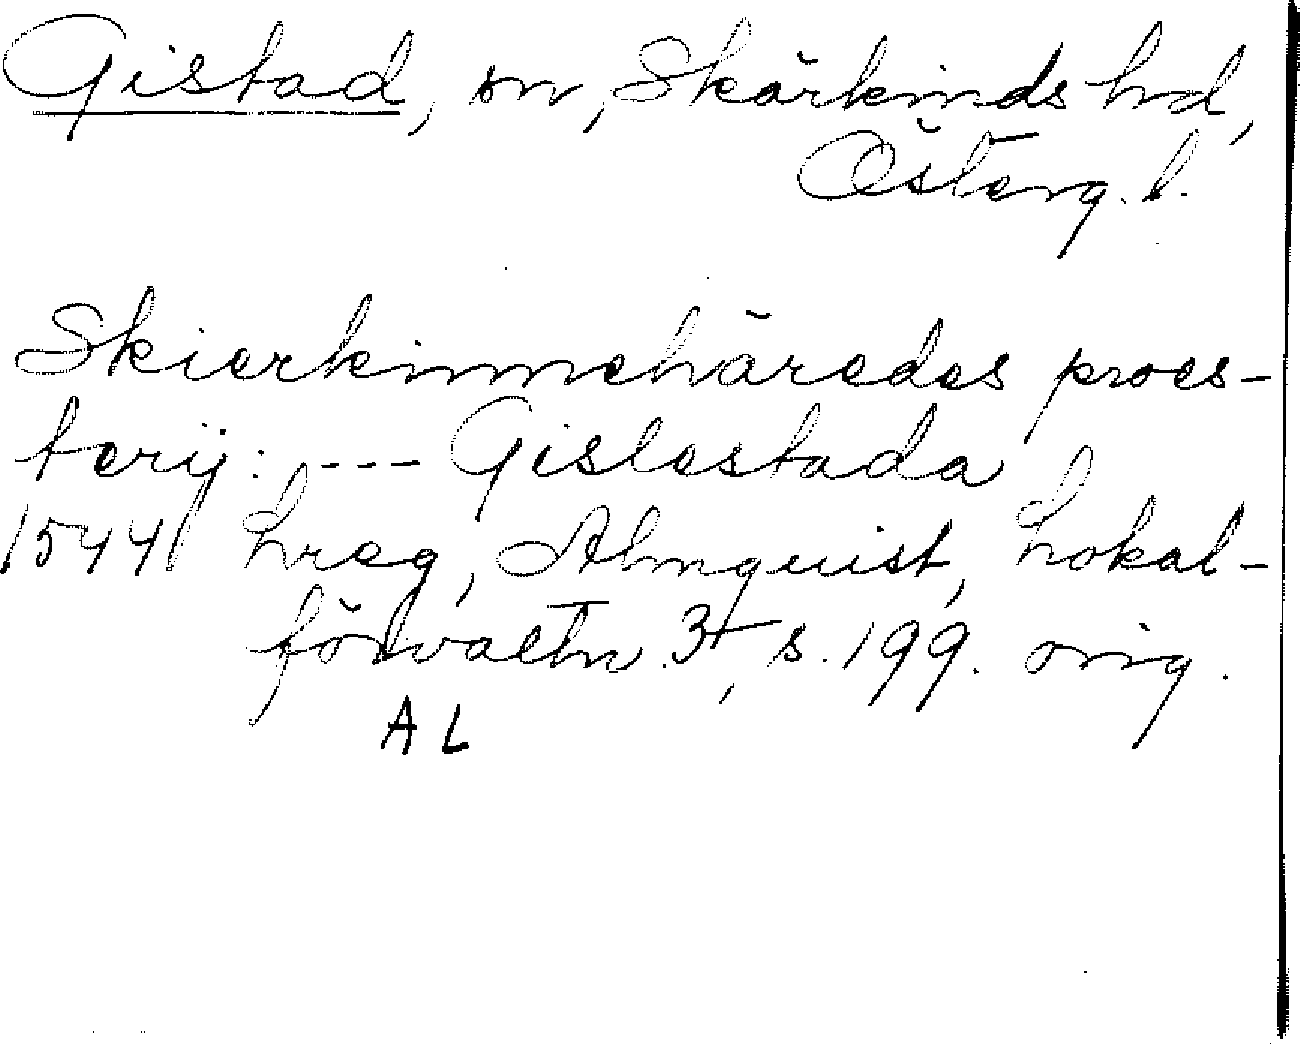 Gistad, sn, Skärkinds hd,
Österg. l.
Skierkinnehäredes proes-
terij: --- Gislestada
1544 Lreg, Almquist, Lokal-
förvaltn. 3, s. 199. orig.
AL